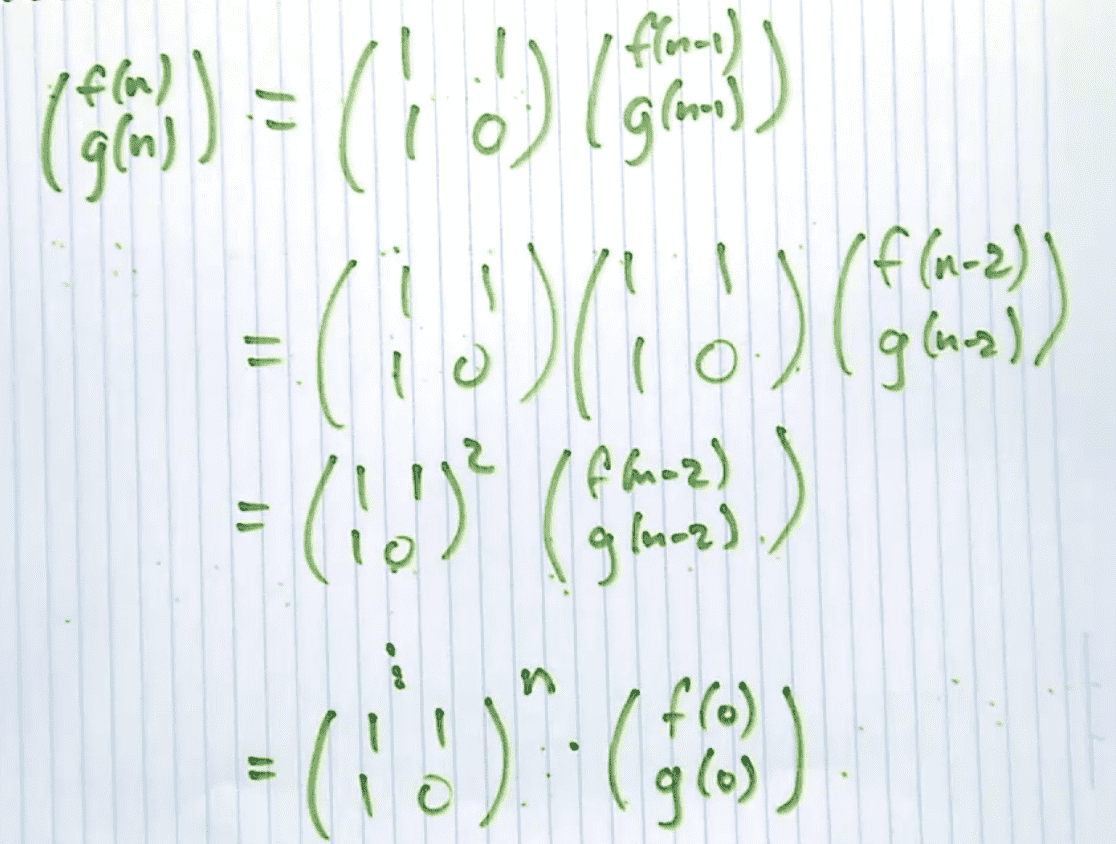 (f(n) g(n)) = (1 1 1 0) (f(n-1) g(n-1))
= (1 1 1 0) (1 1 1 0) (f(n-2) g(n-2))
= (1 1 1 0)^2 (f(n-2) g(n-2))
⋮
= (1 1 1 0)^n · (f(0) g(0))